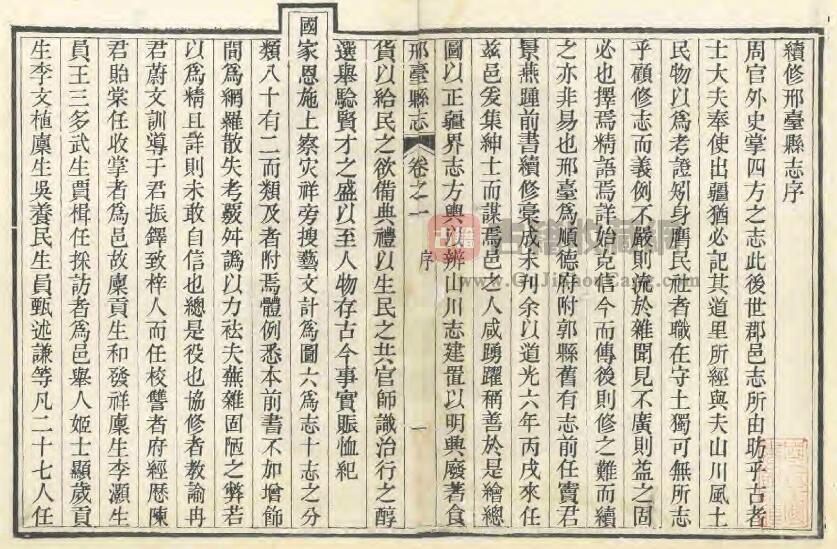 續修邢臺縣志序
周官外史掌四方之志此後世郡邑志所由昉乎古者
士大夫奉使出疆猶必記其道里所經與夫山川風土
民物以爲考證矧身膺民社者職在守土獨可無所志
乎顧修志而義例不嚴則流於雜聞見不廣則益之固
必也擇焉精語焉詳始克信今而傳後則修之難而續
之亦非易也邢臺爲順德府附郭縣舊有志前任竇君
景燕踵前書續修稾成未刋余以道光六年丙戌來任
茲邑爰集紳士而謀焉邑之人咸踴躍稱善於是繪總
圖以正疆界志方輿以辨山川志建置以明興廢著食
邢臺縣志 卷之一 序 一
貨以給民之欲備典禮以生民之共官師識治行之醇
選舉驗賢才之盛以至人物存古今事實賑恤紀
國家恩施上察灾祥旁搜藝文計爲圖六爲志十志之分
類八十有二而類及者附焉體例悉本前書不加增飾
間爲網羅散失考覈舛譌以力袪夫蕪雜固陋之弊若
以爲精且詳則未敢自信也總是役也協修者教諭冉
君蔚文訓導于君振鐸致梓人而任校讐者府經歷陳
君貽棠任收掌者爲邑故廩貢生和發祥廩生李灝生
員王三多武生賈楫任採訪者爲邑舉人姬士顯歲貢
生李文植廩生吳養民生員甄述謙等凡二十七人任
古籍收藏網
www.GuJiShouCang.com